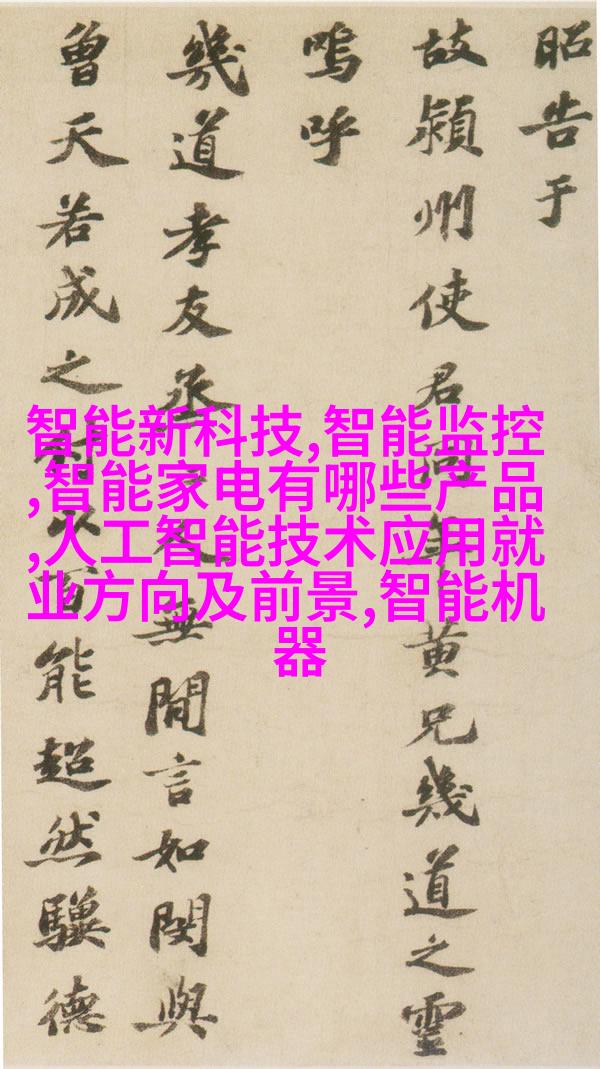 昭告于
故潁州使君同年黄兄幾道之靈
嗚呼
幾道孝友烝人無閒言如閔與
曾天若成之以百能超然驥德
智能新科技,智能监控
,智能家电有哪些产品
,人工智能技术应用就
业方向及前景,智能机
器